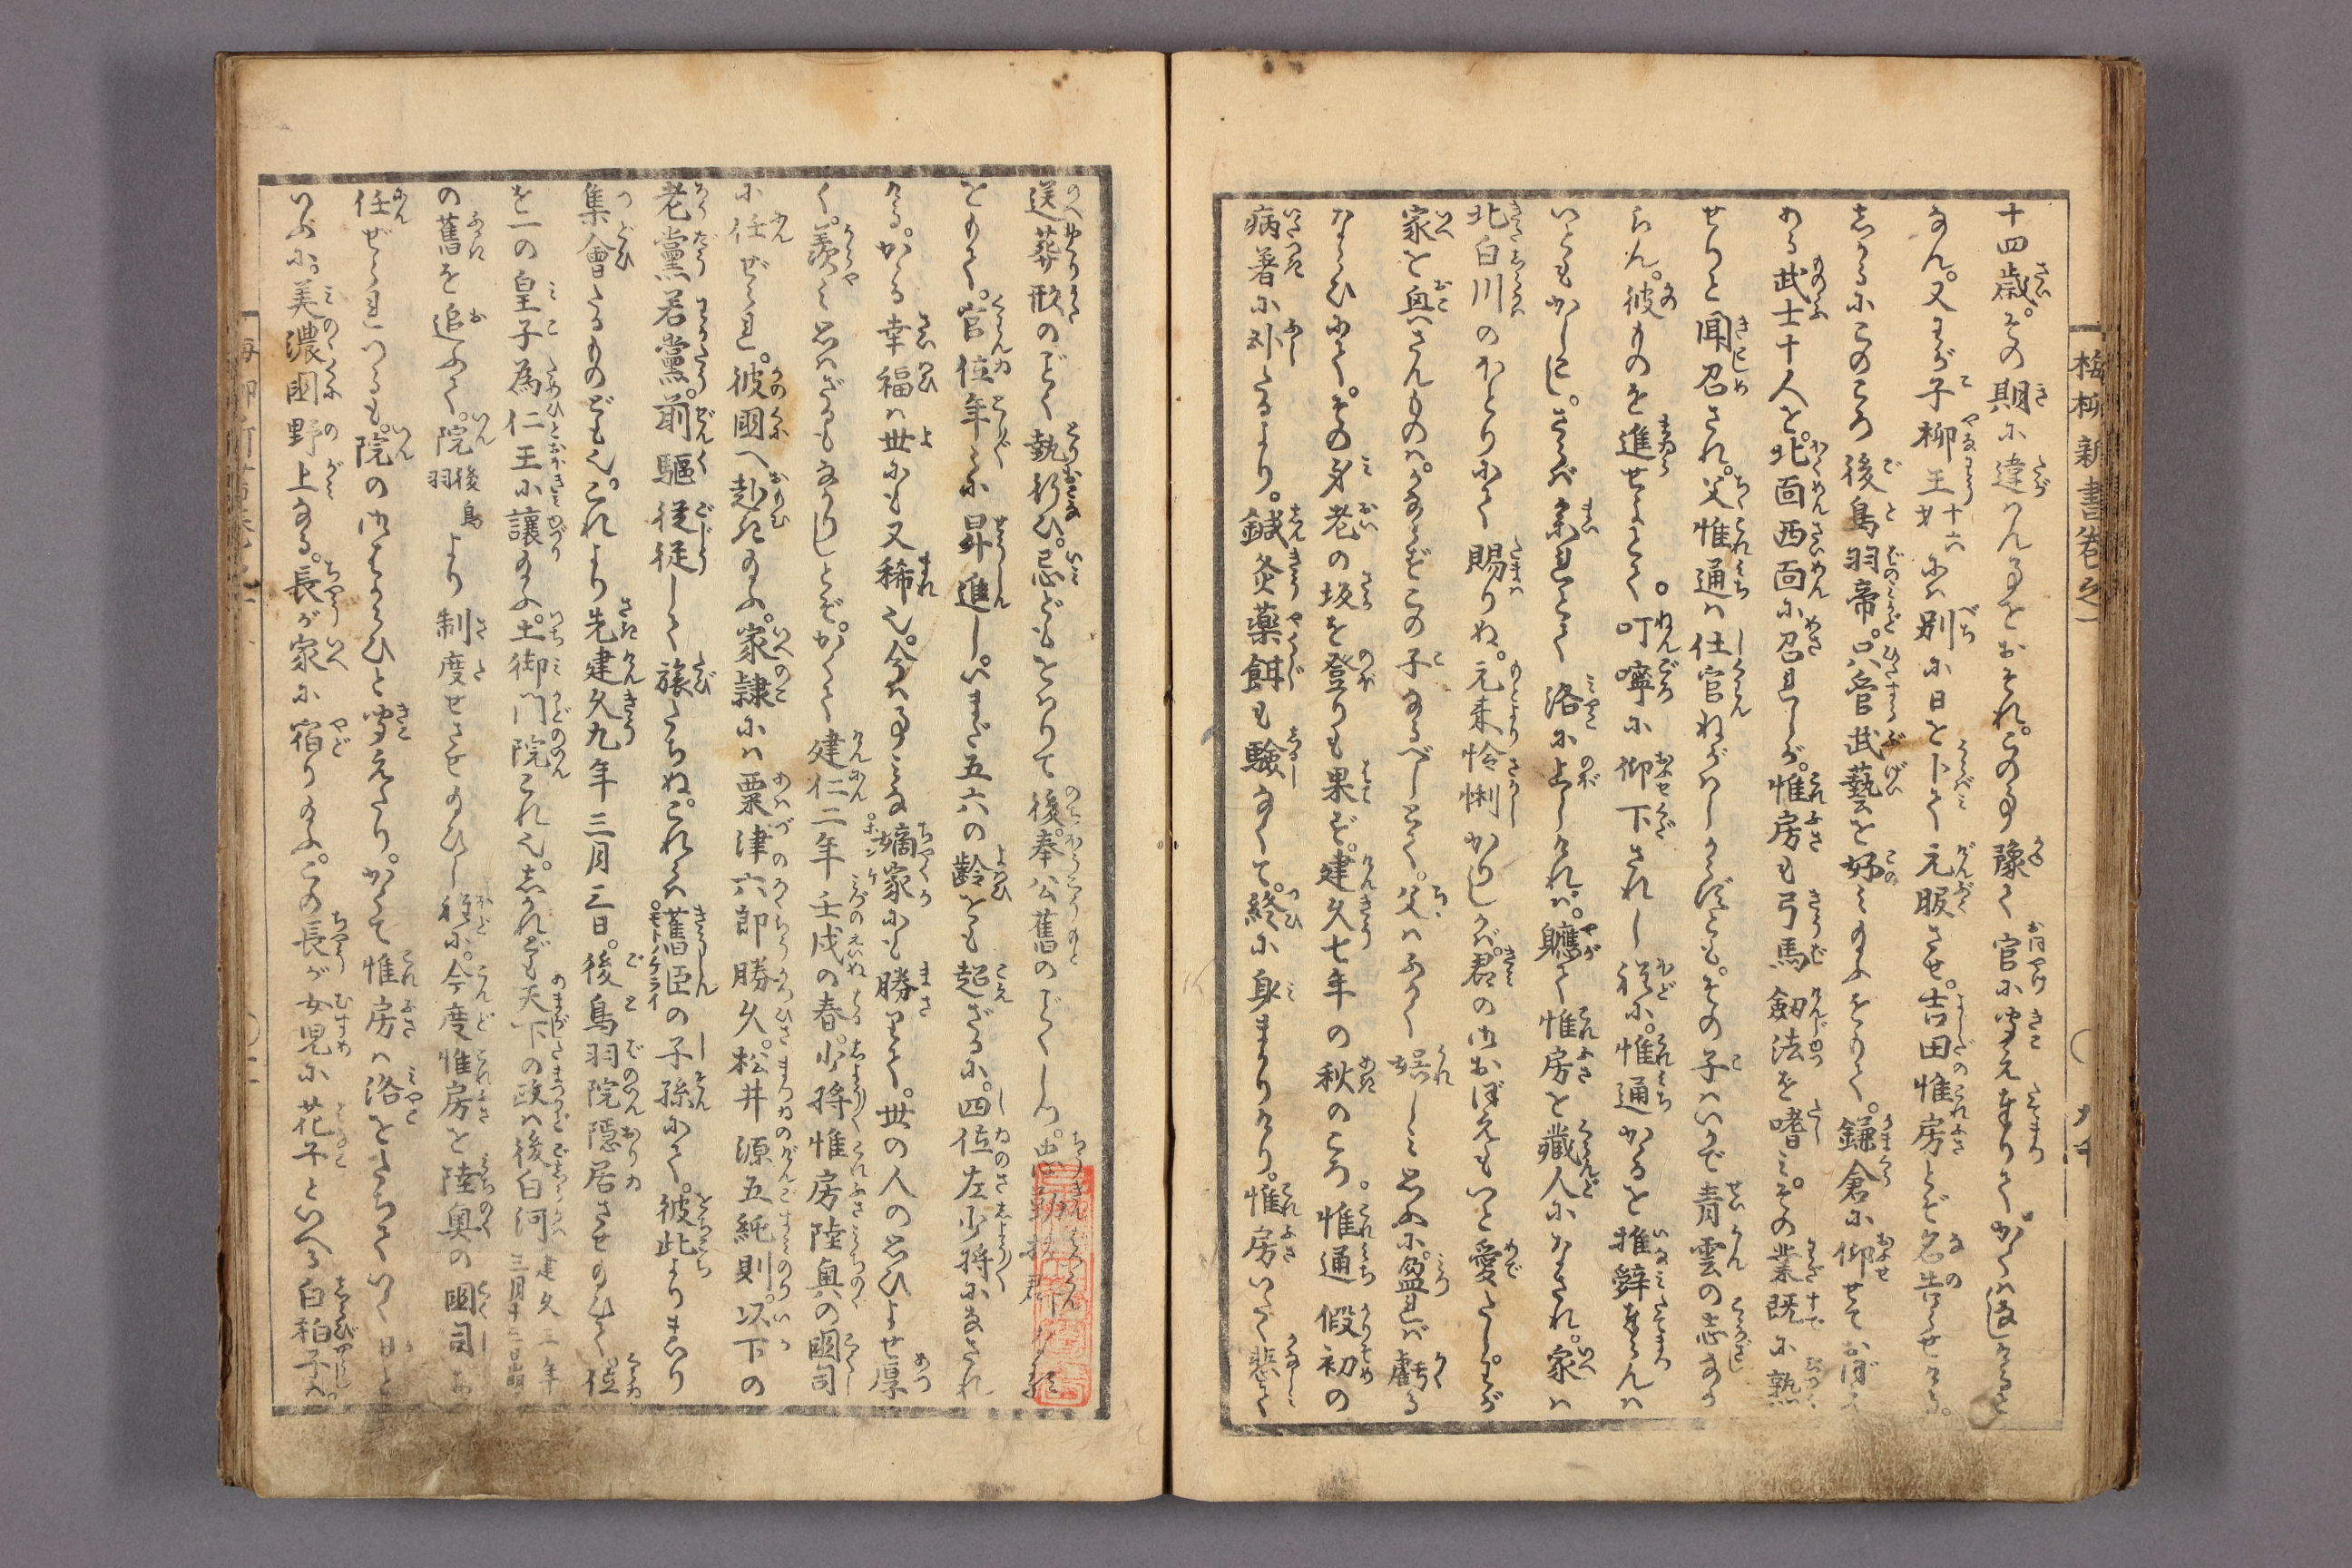 梅柳新書巻之一
十四歳。その期に違はん事をおそれ。この事豫て官に聞えまゐりて
なん。又わが子柳王丸十六には別に日を卜て元服させ。吉田惟房とぞ名告らせける。
しかるにこのころ後鳥羽帝。只管武藝を好み給ふをもて。鎌倉に仰せておぼえ
ある武士十人を。北面西面に召れしが。惟房も弓馬劔法を嗜み。その業既に熟
せりと聞召され。父惟通は仕官ねがはしからずとも。その子はいかで青雲の志なか
らん。彼ものを進せよとて。叮嚀に仰下されし程に。惟通かるを推辞まうらんは
いともかしこし。さらば参れとて洛に上しければ。軈て惟房を蔵人になされ。家は
北白川のほとりにて賜りぬ。元来怜悧かりしかば。君の御おぼえもいと愛たし。わが
家を興さんものは。かならずこの子なるべしとて。父はふかく娯しみ思ふに。盈れば虧る
ならひにて。その身老の坂を登りも果ず。建久七年の秋のころ惟通假初の
病著に臥たるより。鍼灸薬餌も験なくて。終に身まかりけり。惟房いたく悲みて
送葬形のごとく執行ひ。忌どもをはりて後奉公舊のごとくしつ。
をもて。官位年々に昇進し。いまだ五六の齢をも超ざるに。四位左少将になされ
ける。かゝる幸福は世にも又稀也。今は事みな嫡家にも勝りて。世の人の思ひよせ厚
く。羨しと思はざるもなかりしとぞ。かくて建仁二年壬戌の春。少将惟房陸奥の國司
に任ぜられ。彼國へ赴き給ふ。家隷には粟津六郎勝久。松井源五純則。以下の
老黨若黨。前驅従徒して旅たちぬ。これらは舊臣の子孫にて。彼此よりまゐり
集會たるものども也。これより先建久九年三月三日。後鳥羽院隠居させ給ひて。位
を一の皇子為仁王に讓給ふ。土御門院これ也。しかれども天下の政は後白河建久三年三月十三日崩
の舊を追ふて。院後鳥羽より制度せさせ給ひし程に。今度惟房を陸奥の國司に
任ぜられつるも。院の御はからひと聞えたり。かくて惟房は洛をたちていく日
いふに。美濃國野上なる。長が家に宿り給ふ。この長が女児に花子といへる白拍子